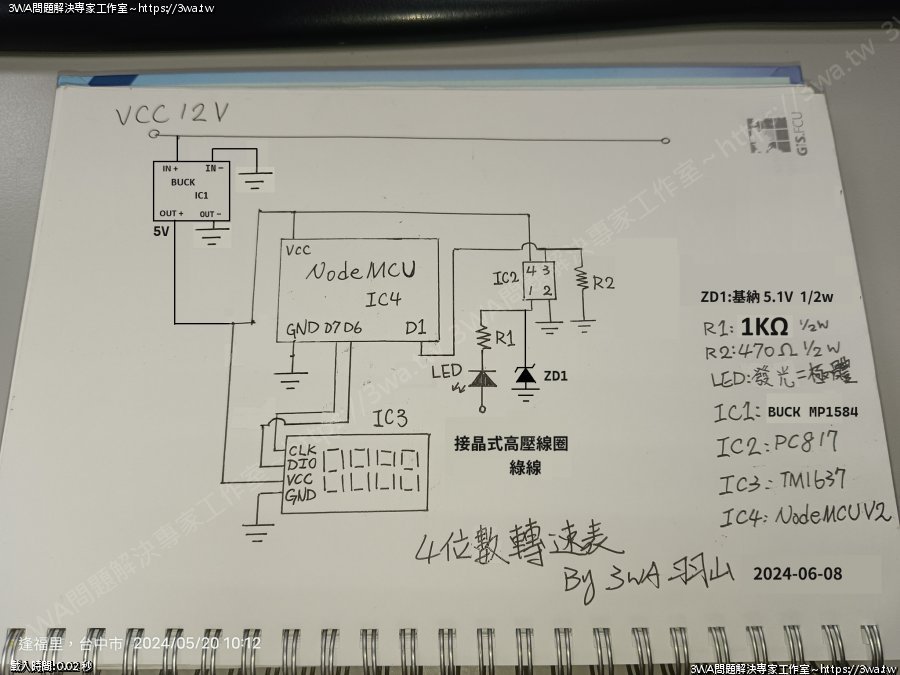 3WA問題解決專家工作室~https://3wa.tw
VCC 12V
GIS.FCU
IN + IN -
BUCK
IC1
OUT + OUT -
5V
VCC
NodeMCU
IC4
GND D7 D6 D1
IC2
4 3
1 2
R2
R1
LED
ZD1
ZD1:基納 5.1V 1/2w
R1: 1KΩ 1/2W
R2:470Ω 1/2W
LED:發光二極體
IC1: BUCK MP1584
IC2:PC817
IC3:TM1637
IC4:NodeMCUV2
IC3
CLK
DIO
VCC
GND
接晶式高壓線圈
綠線
4位數轉速表
By 3WA 羽山 2024-06-08
3WA問題解決專家工作室~https://3wa.tw
逢福里,台中市 2024/05/20 10:12
載入時間:0.02 秒
3WA問題解決專家工作室~https://3wa.tw